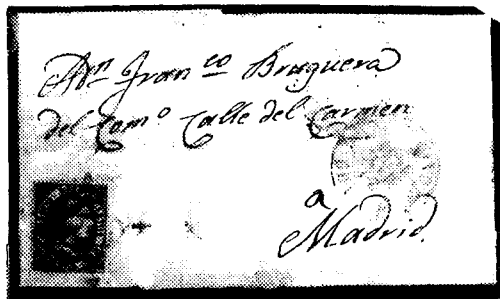 Dn Franco Bruguera
del Como Calle del Carmen
a
Madrid.